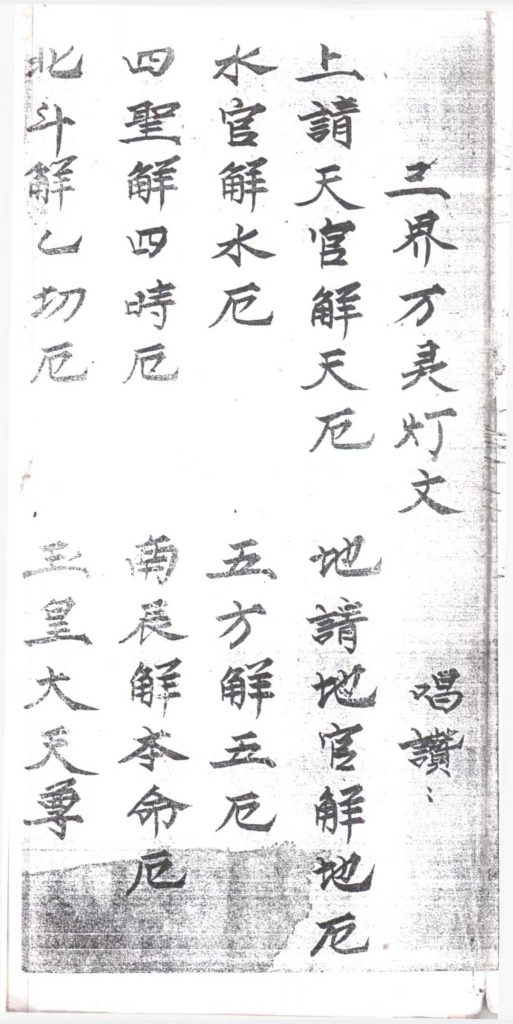 三界万灵灯文 唱讚：
上請天官觧天厄 地請地官觧地厄
水官觧水厄 五方觧五厄
四聖觧四時厄 南辰觧本命厄
北斗觧乙切厄 玉皇大天尊